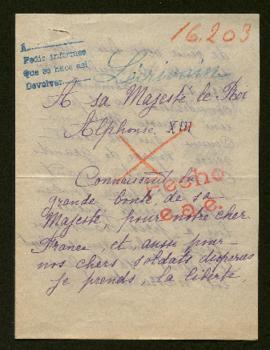 16.203
A
Pedir informes
que se hace así
Devolver.
L'écrivain
A sa Majesté le Roi
Alphonse XIII
Connaissant la
Fecho
grande bonté de sa
Majesté, pour notre cher
France, et aussi pour
nos chers soldats disparus
je prends, la liberté